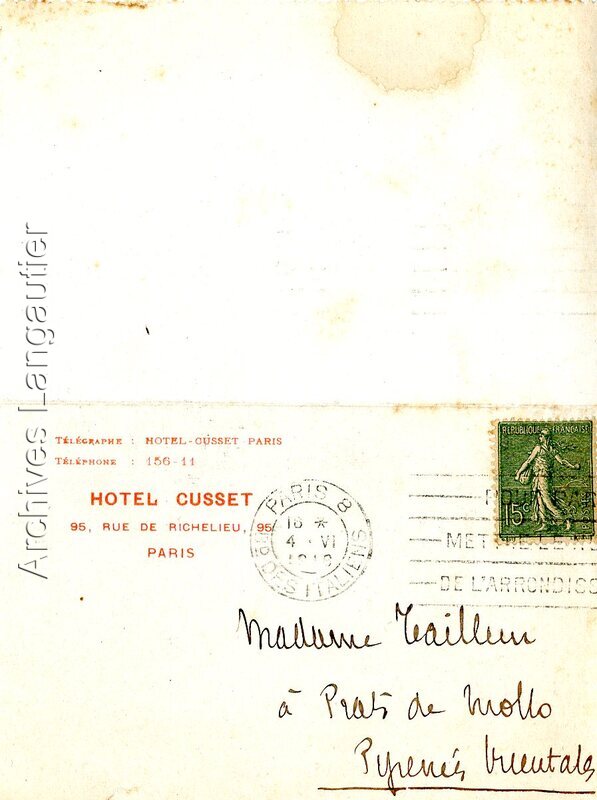 Archives Langautier
TÉLÉGRAPHE : HOTEL-CUSSET-PARIS
TÉLÉPHONE : 156-11
HOTEL CUSSET
95, RUE DE RICHELIEU, 95
PARIS
REPUBLIQUE FRANÇAISE
15c
PARIS 8
18 *
4 - VI
BD DES ITALIENS
METTRE LE N
DE L'ARRONDISS
Madame Tailleur
à Prats de Mollo
Pyrenées Orientales